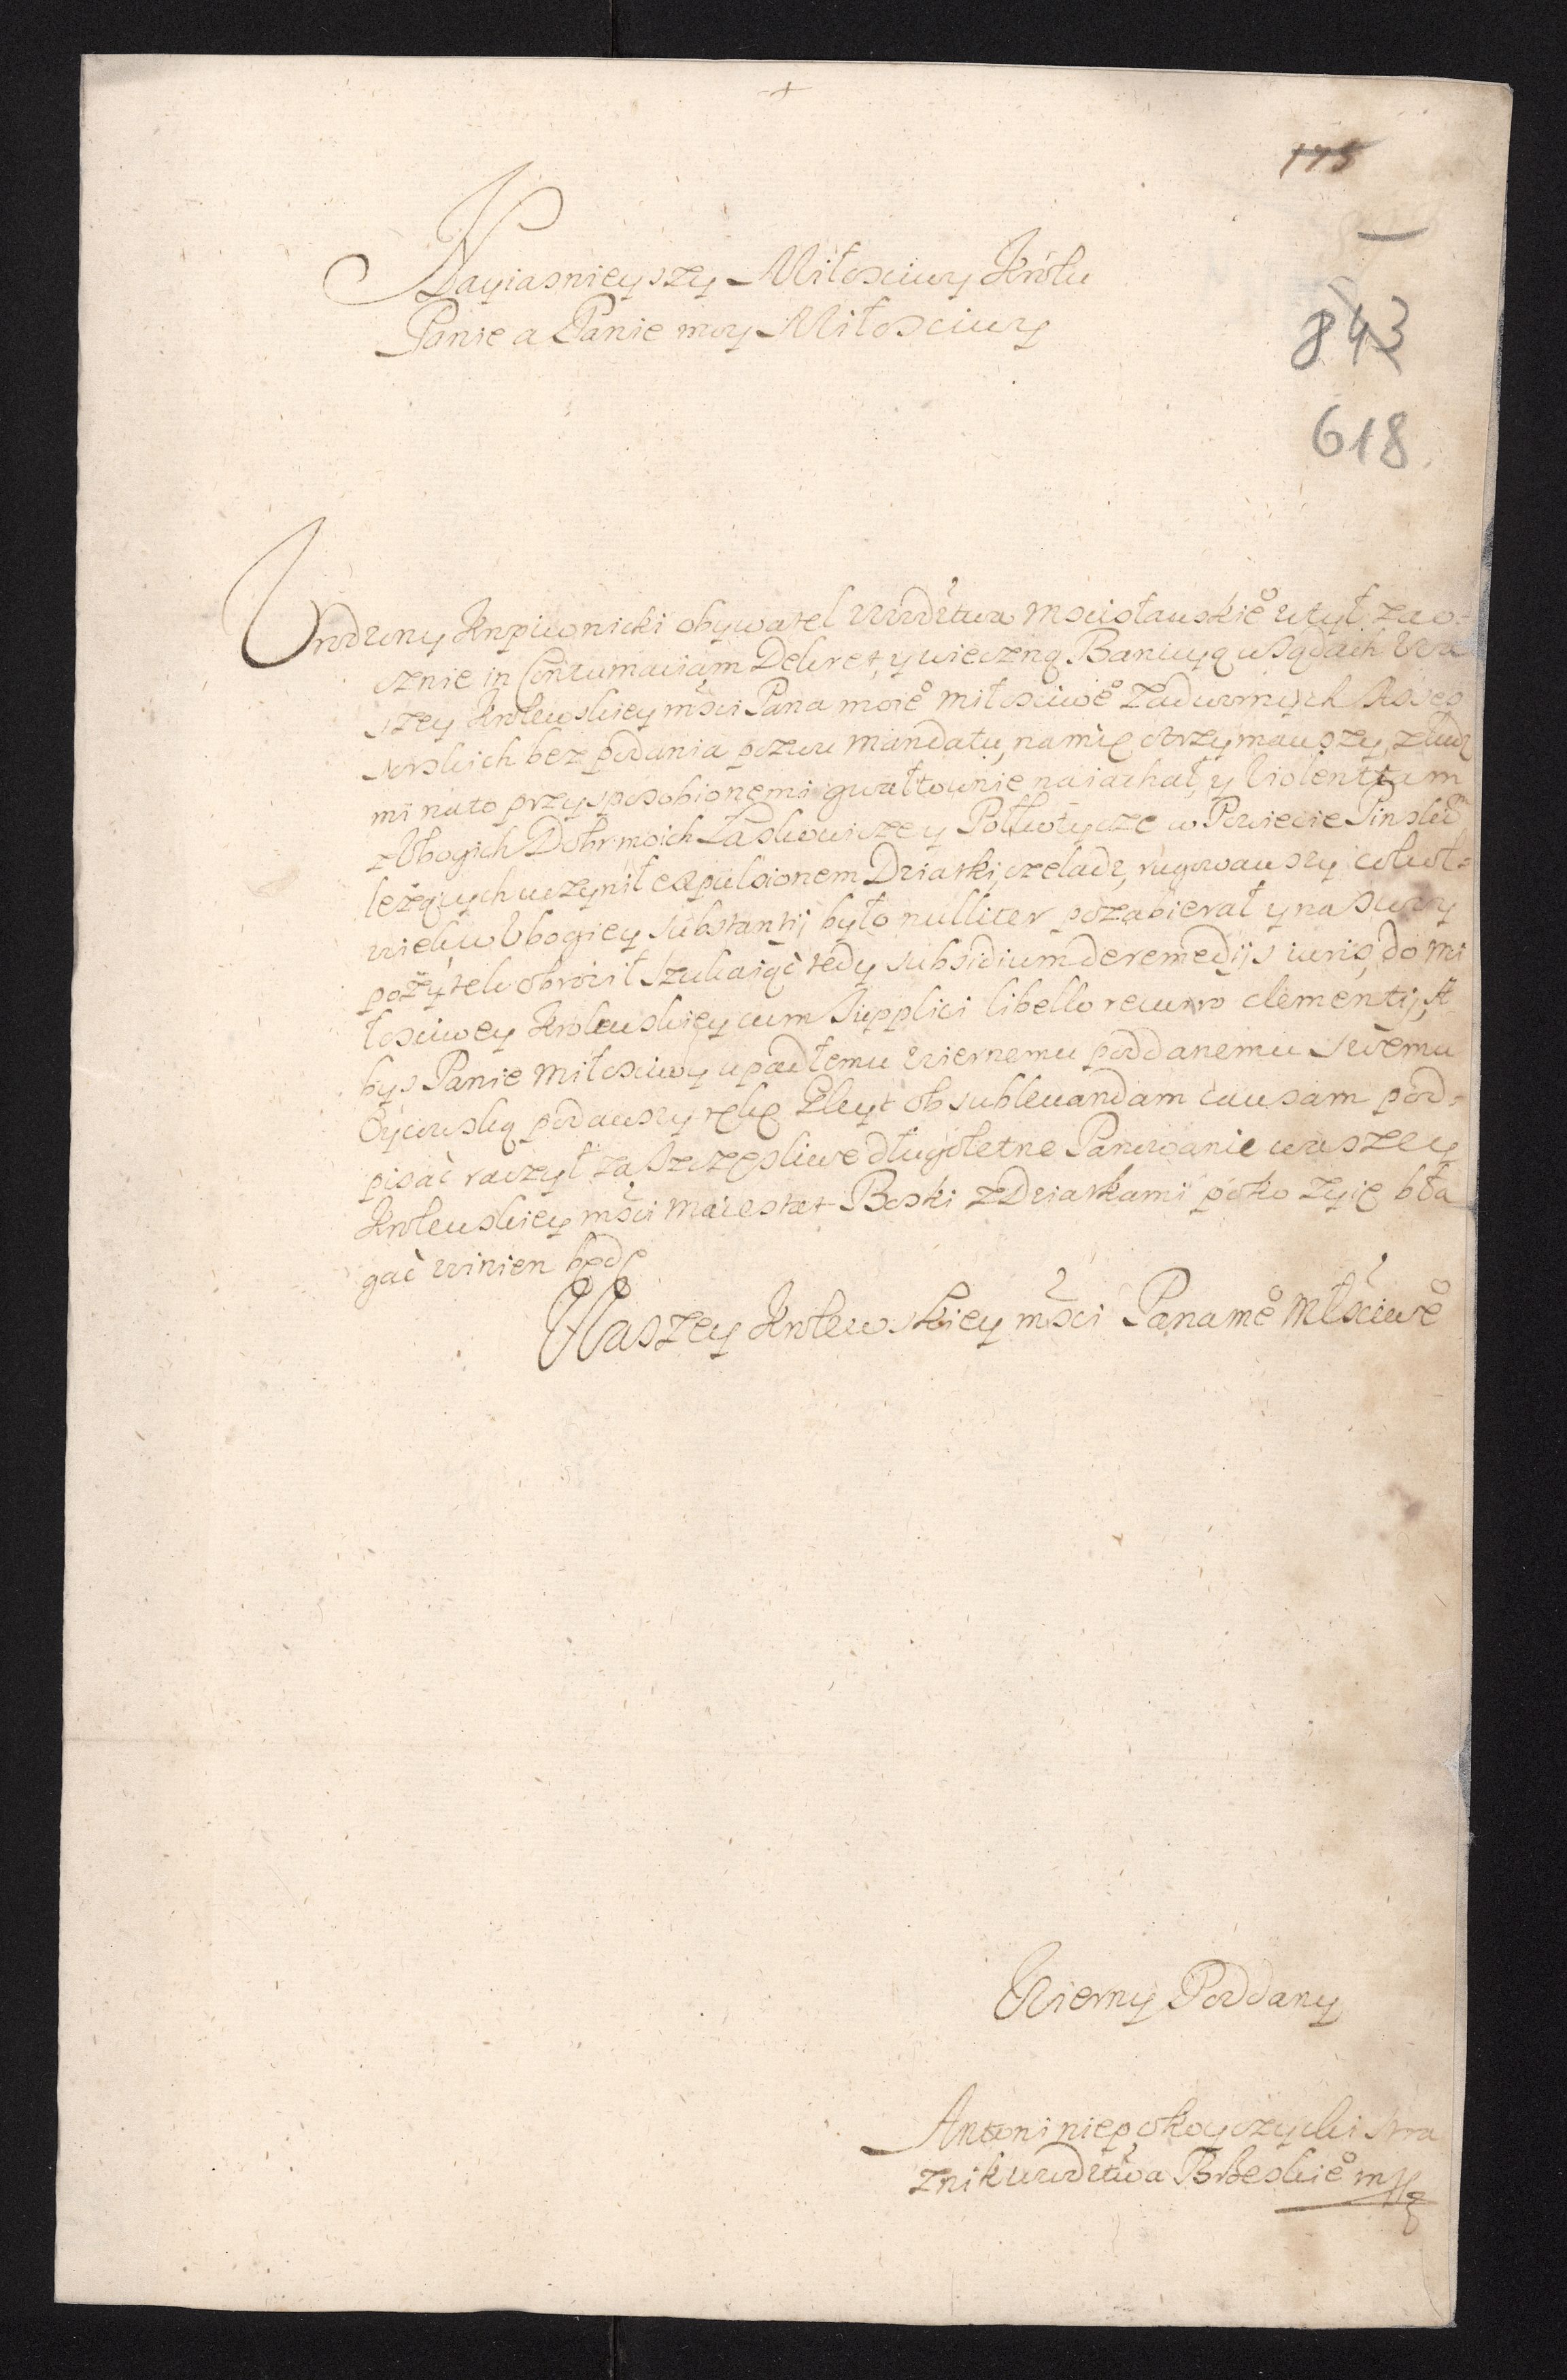 175
843
618
Nayiasnieyszy Miłosciwy Królu
Panie a Panie moy Miłosciwy
Vrodzony Krzpiwonicki obywatel Wwdztwa Mscisławskie° użył zao-
cznie in Contumaciam Dekret, y wieczną Banicyą w Sądach Wa
szey Krolewskiey mści Pana moie° miłosciwe° Zadwornych Asses
sorskich bez podania pozwu mandatu, na mię otrzymawszy, z ludz
mi na to przysposobionemi gwałtownie naiachał, y Violentiam
z Vbogich Dobr moich Laskowicze y Połtwotycze w Powiecie Pinskim
leżących uczynił expulsionem Dziatki, czeladz, rugowawszy, cokol-
wiek w Vbogiey substantij było nulliter pozabierał y na swoy
pożytek obrócił, szukaiąć tedy subsidium de remedijs iuris, do mi
łosciwey Krolewskiey cum supplici libello recurro clementij, A
bys Panie Miłosciwy upadłemu wiernemu poddanemu swemu
Oycowską podawszy rękę Gleyt ob sublevandam causam pod-
pisać raczył, za szczęsliwe długoletne Panowanie waszey
Krolewskiey mści Maiestat Boski z Dziatkami poko żyię bła
gać winien będę
Waszey Krolewskiey mści Pana me° Młściwe°
Wierny Poddany
Antoni niepokoyczycki Stra
żnik wwdztwa Brzeskie° mpp